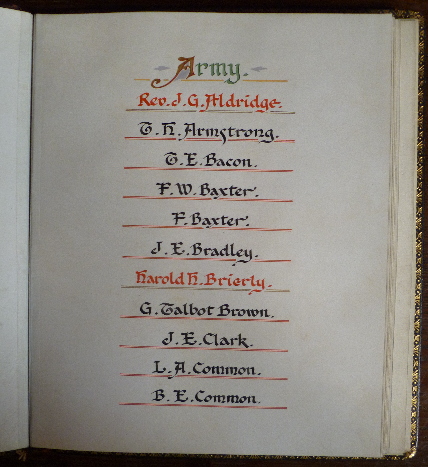 Army.
Rev. J. G. Aldridge.
T. H. Armstrong.
T. E. Bacon.
F. W. Baxter.
F. Baxter.
J. E. Bradley.
Harold H. Brierly.
G. Talbot Brown.
J. E. Clark.
L. A. Common.
B. E. Common.